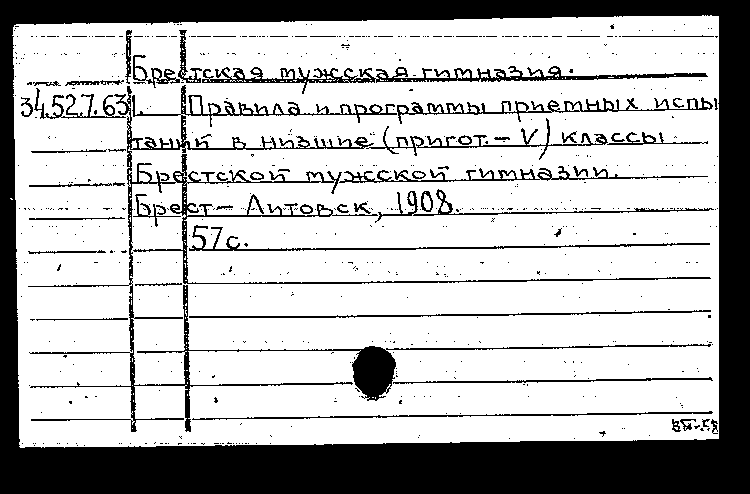 Брестская мужская гимназия.
34.52.7.631. Правила и программы приемных испы
таний в низшие (пригот. - V) классы
Брестской мужской гимназии.
Брест - Литовск, 1908.
57с.